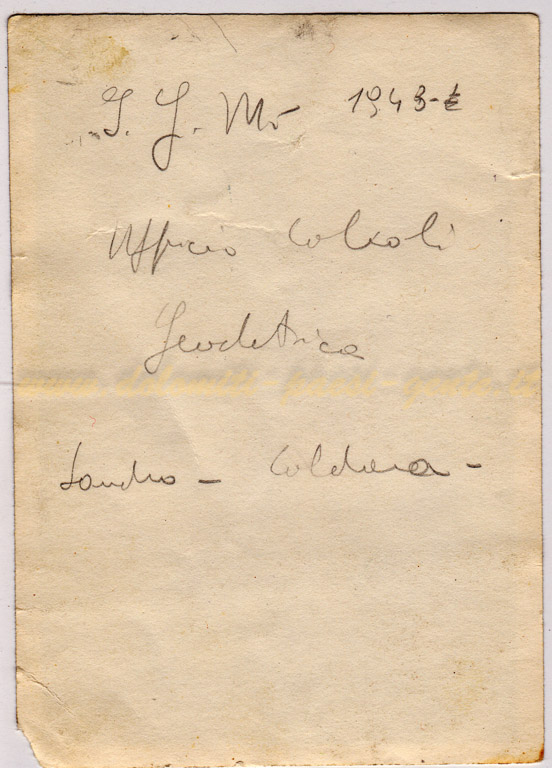 I. G. M. 1943-E
Ufficio Calcoli
Geodetica
www.dolomiti-paesi-gente.it
Sandro - Caldera -